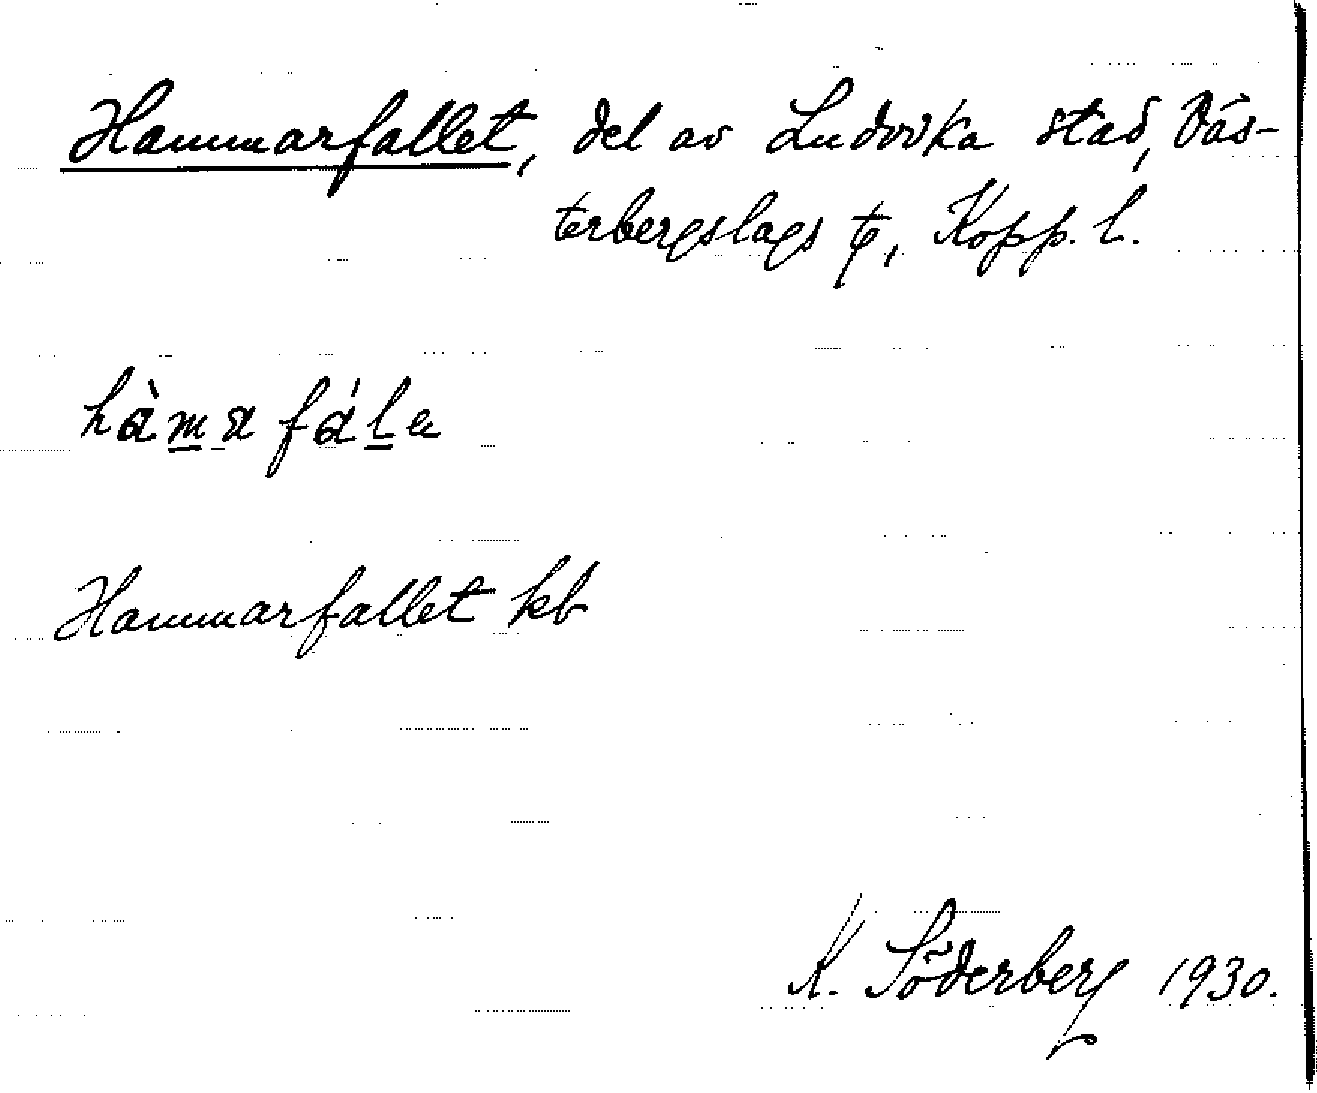 Hammarfallet, del av Ludvika stad, Väs-
terbergslags t, Kopp. l.
hàma fála
Hammarfallet kb
K. Söderberg 1930.